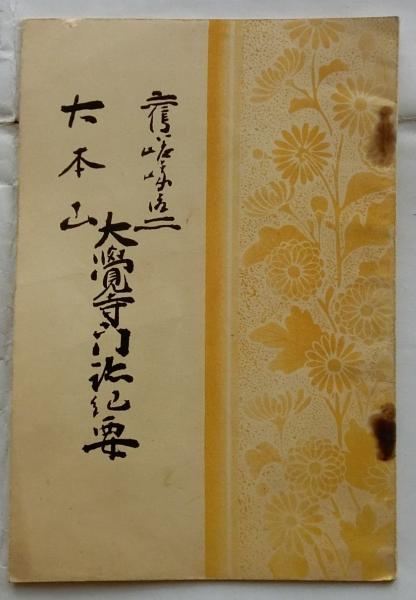 舊嵯峨御所
大本山
大覺寺門跡紀要